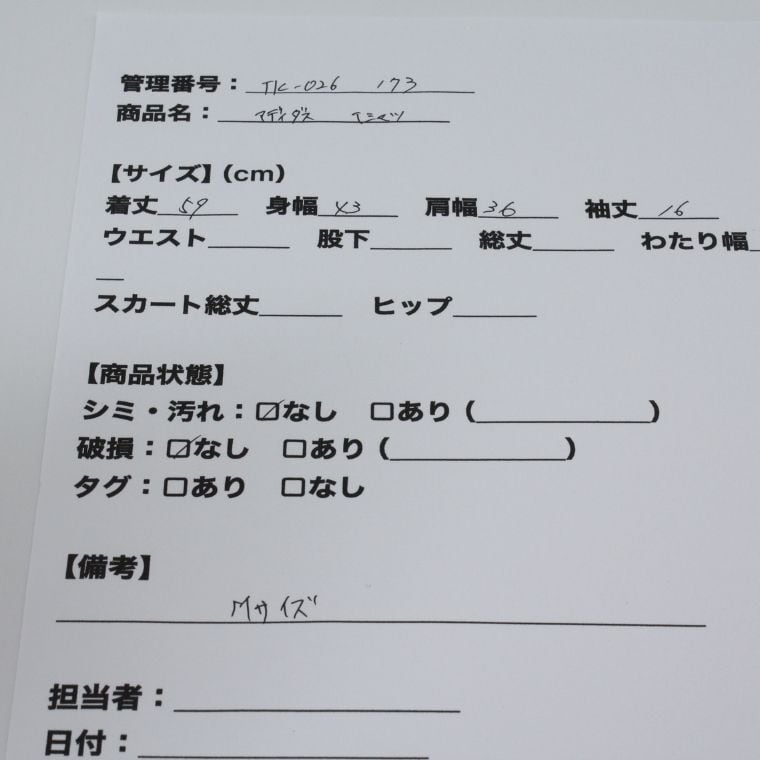 管理番号：TK-026 173
商品名：アディダス Tシャツ
【サイズ】(cm)
着丈 59 身幅 43 肩幅 36 袖丈 16
ウエスト______ 股下______ 総丈______ わたり幅_
__
スカート総丈______ ヒップ______
【商品状態】
シミ・汚れ：☑なし □あり（______________）
破損：☑なし □あり（______________）
タグ：□あり □なし
【備考】
Mサイズ
担当者：______________
日付：______________